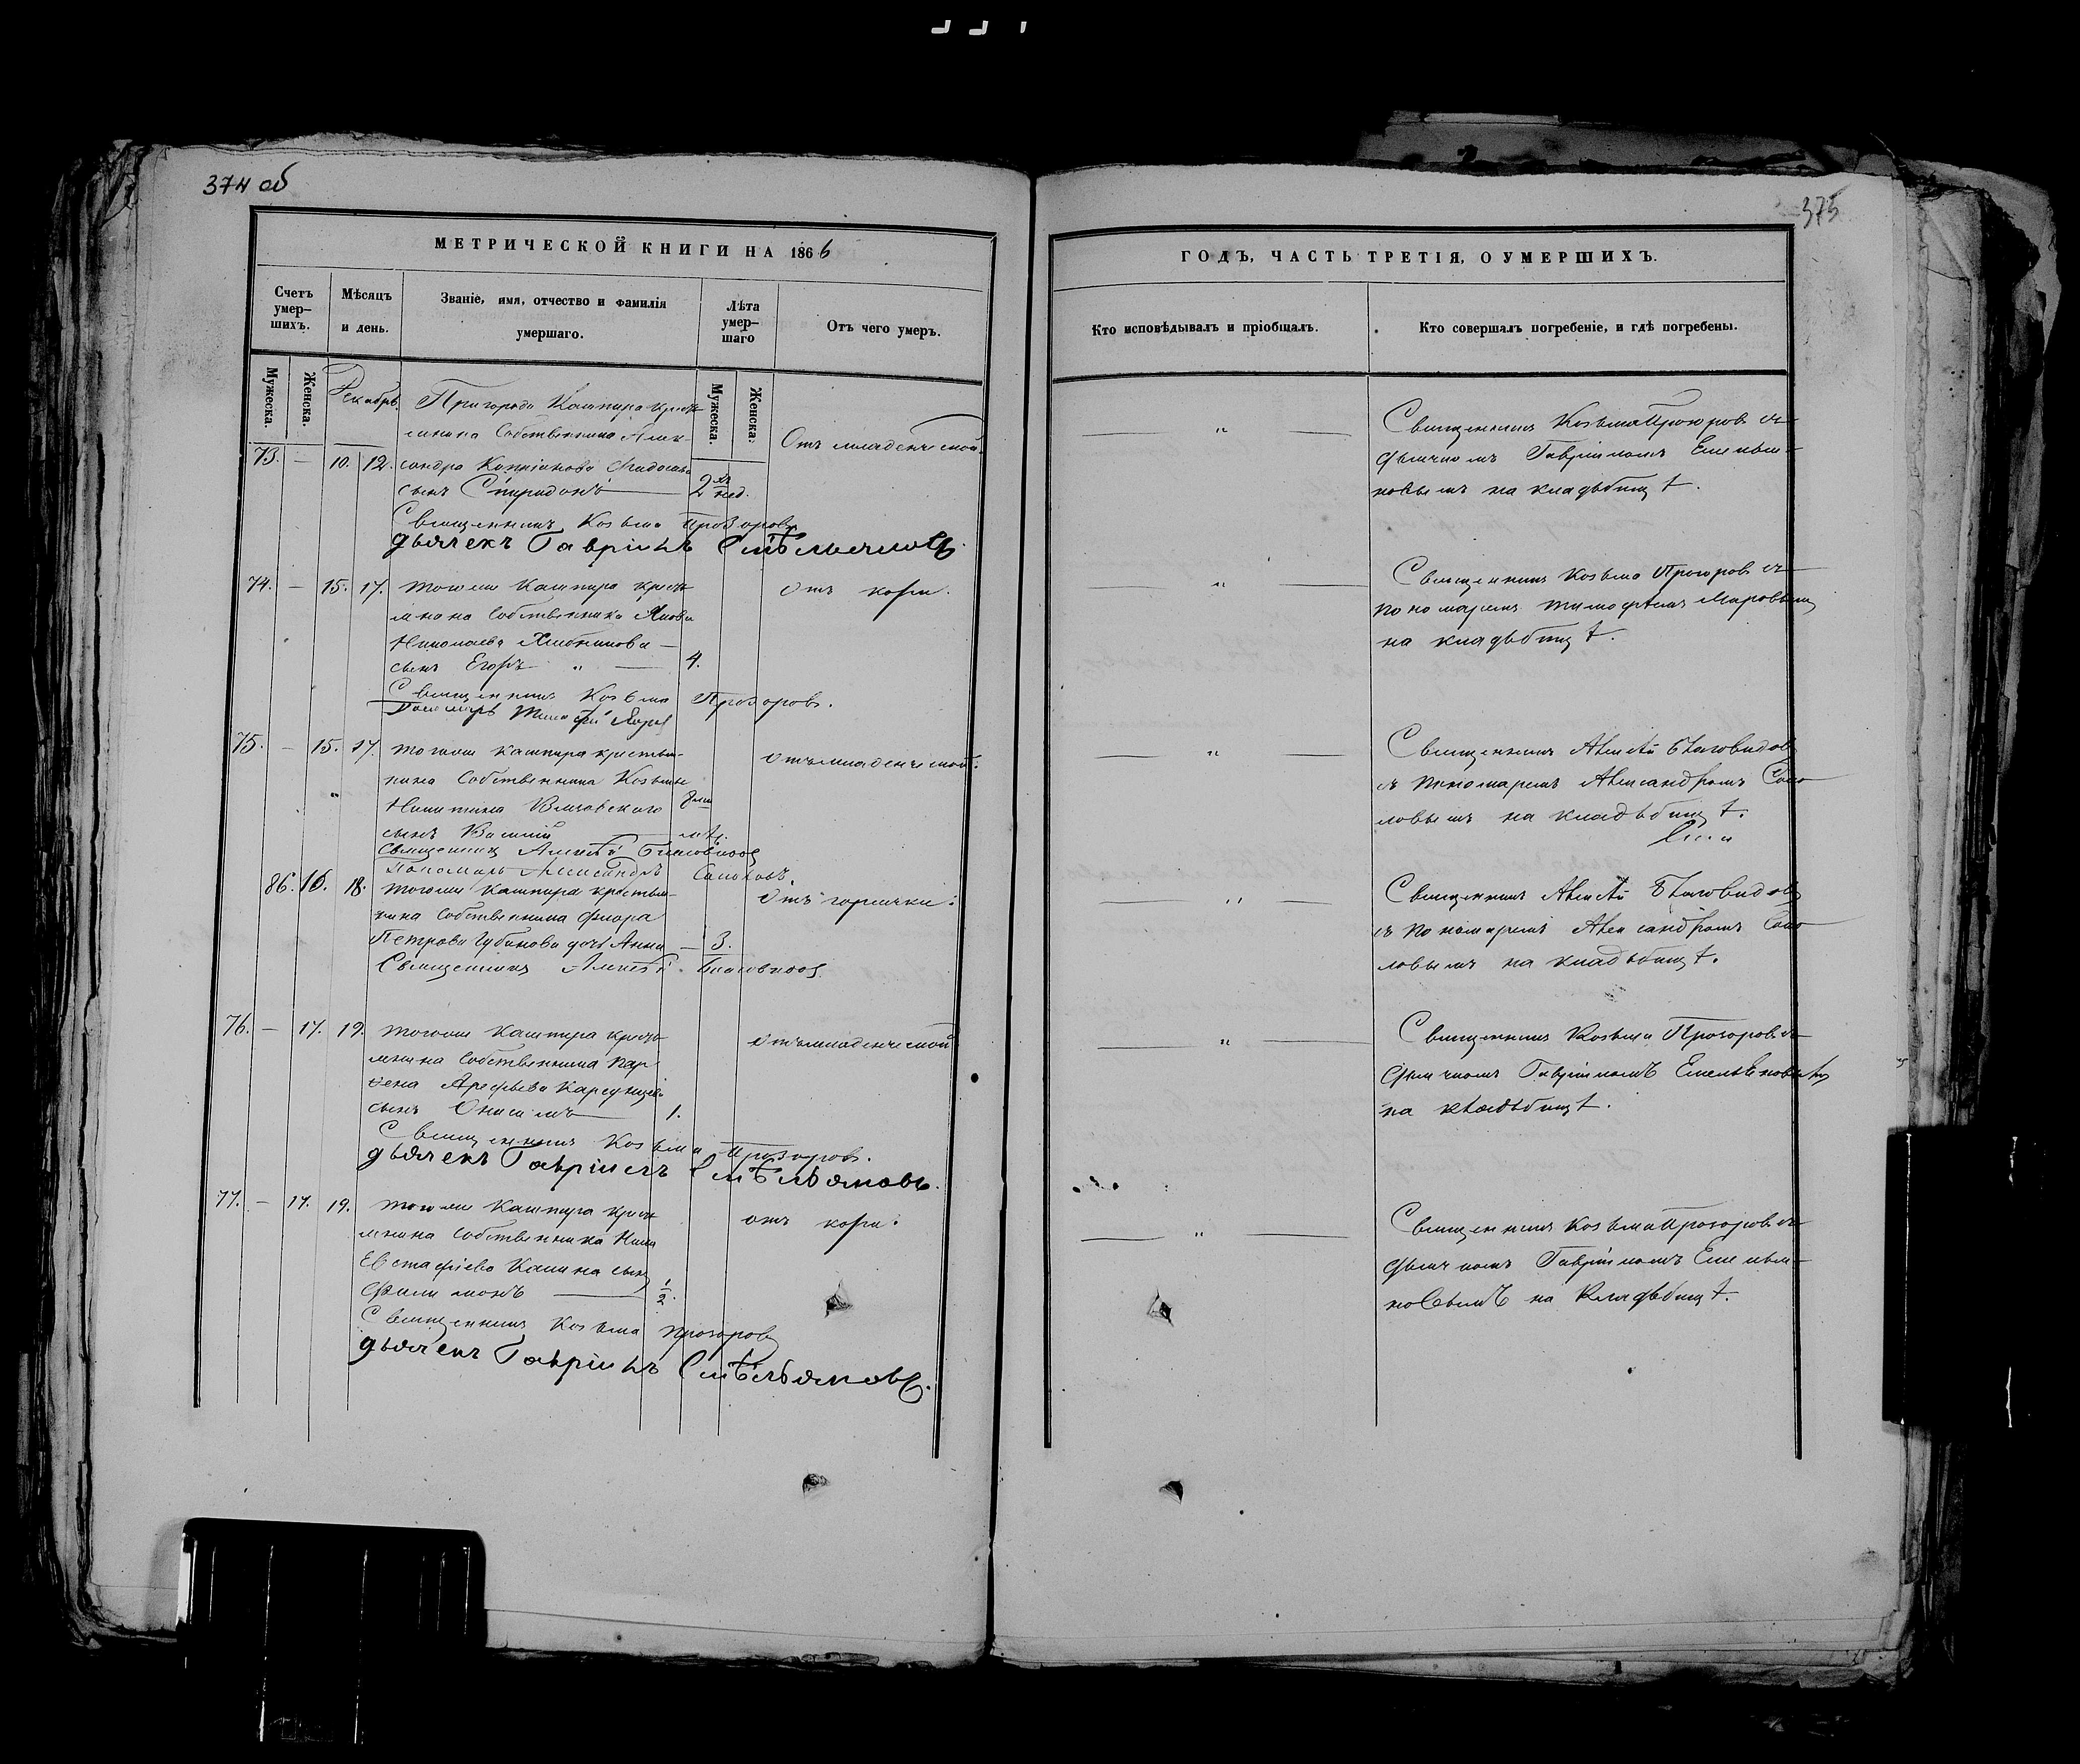 374 об
375
МЕТРИЧЕСКОЙ КНИГИ НА 1866
ГОДЪ, ЧАСТЬ ТРЕТІЯ, О УМЕРШИХЪ.
Счетъ умер–шихъ.
Мѣсяцъ и день.
Званіе, имя, отчество и фамилія умершаго.
Лѣта умер–шаго
Отъ чего умеръ.
Кто исповѣдывалъ и пріобщалъ.
Кто совершалъ погребеніе, и гдѣ погребены.
Мужеска.
Женска.
Декабрь.
Мужеска.
Женска.
Пригорода Кашпира кресть
янина Собственника Алек-
73. — 10. 12. сандра
сынъ Спиридонъ — 2 хъ нед.
Отъ младенческой.
Священникъ Козьма Прозоровъ
дьячекъ Гавріилъ
Священникъ Козьма Прозоровъ съ
дьячкомъ Гавріиломъ Емелья-
новымъ на кладбищѣ.
74. — 15. 17. Тогоже Кашпира кресть
янина Собственника Якова
Николаева
сынъ Егоръ " — 4.
отъ кори.
Священникъ Козьма Прозоровъ.
Пономарь Тимофей
Священникъ Козьма Прозоровъ съ
пономаремъ Тимофеемъ
на кладбищѣ.
75. — 15. 17. Тогоже Кашпира крестья-
нина Собственника Козьмы
Никитина Вязовскаго
сынъ Василій
отъ младенческой.
Священникъ Алексѣй Благовидовъ
Пономарь Александръ Соколовъ.
Священникъ Алексѣй Благовидовъ
съ пономаремъ Александромъ Соко
ловымъ на кладбищѣ.
86. 16. 18. Тогоже Кашпира крестья-
нина Собственника Флора
Петрова Губанова дочь Анна — 3.
отъ горячки.
Священникъ Алексѣй Благовидовъ
Священникъ Алексѣй Благовидовъ
съ пономаремъ Александромъ Соко
ловымъ на кладбищѣ.
76. — 17. 19. Тогоже Кашпира кресть
янина Собственника Пар
ѳена Арефьева
сынъ Онисимъ — 1.
отъ младенческой
Священникъ Козьма Прозоровъ.
дьячекъ Гавріилъ Емѣльяновъ.
Священникъ Козьма Прозоровъ съ
дьячкомъ Гавріиломъ Емельяновымъ
на кладбищѣ.
77. — 17. 19. Тогоже Кашпира кресть
янина Собственника
Евстафіева Канина сынъ
Филимонъ — 1/2.
отъ кори.
Священникъ Козьма Прозоровъ
дьячекъ Гавріилъ Емѣльяновъ.
Священникъ Козьма Прозоровъ съ
дьячкомъ Гавріиломъ Емелья-
новымъ на кладбищѣ.